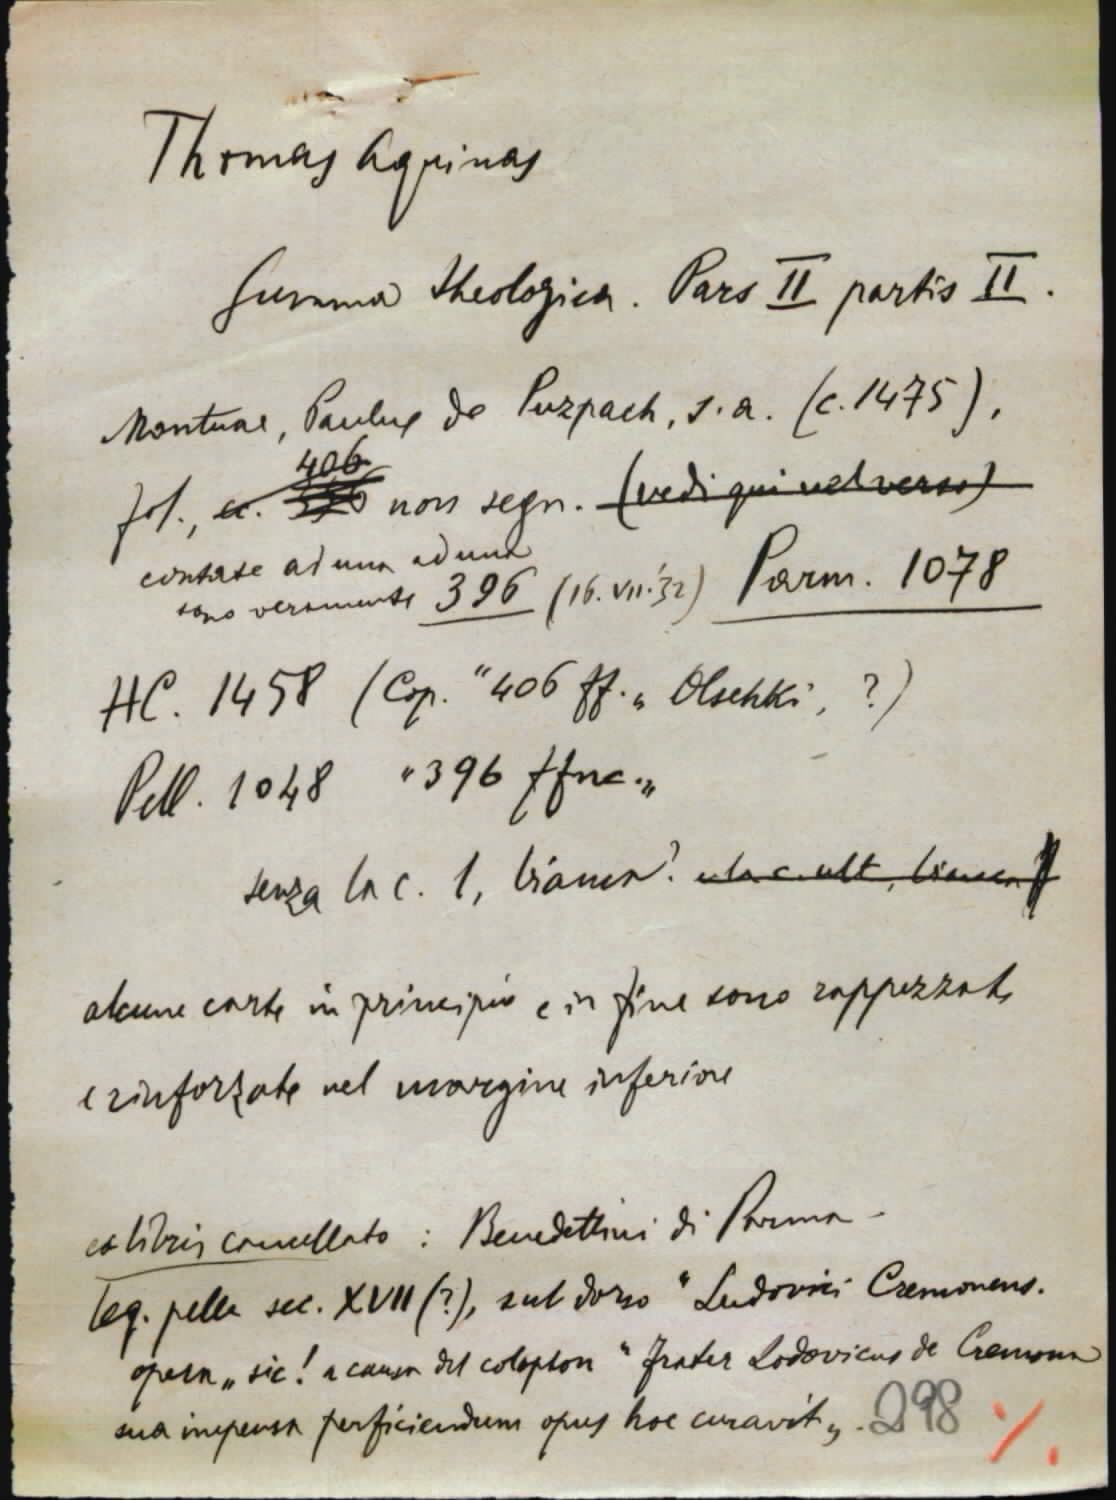 Thomas Aquinas
Summa theologica. Pars II partis II.
Mantuae, Paulus de Puzpach, s.a. (c. 1475),
406
fol., cc. non segn. (vedi qui nel verso)
contate ad una ad una
sono veramente 396 (16.VII.'32) Parm. 1078
HC. 1458 (Cop. "406 ff.„ Olschki, ?)
Pell. 1048 "396 ffnc.„
senza la c. 1, bianca? e la c. ult, bianca
alcune carte in principio e in fine sono rappezzate
e rinforzate nel margine inferiore
ex libris cancellato : Benedettini di Parma -
Leg. pelle sec. XVII (?), sul dorso "Ludovici Cremonens.
opera„ sic! a causa del colophon "frater Lodovicus de Cremona
sua impensa perficiendum opus hoc curavit„. 298 /.